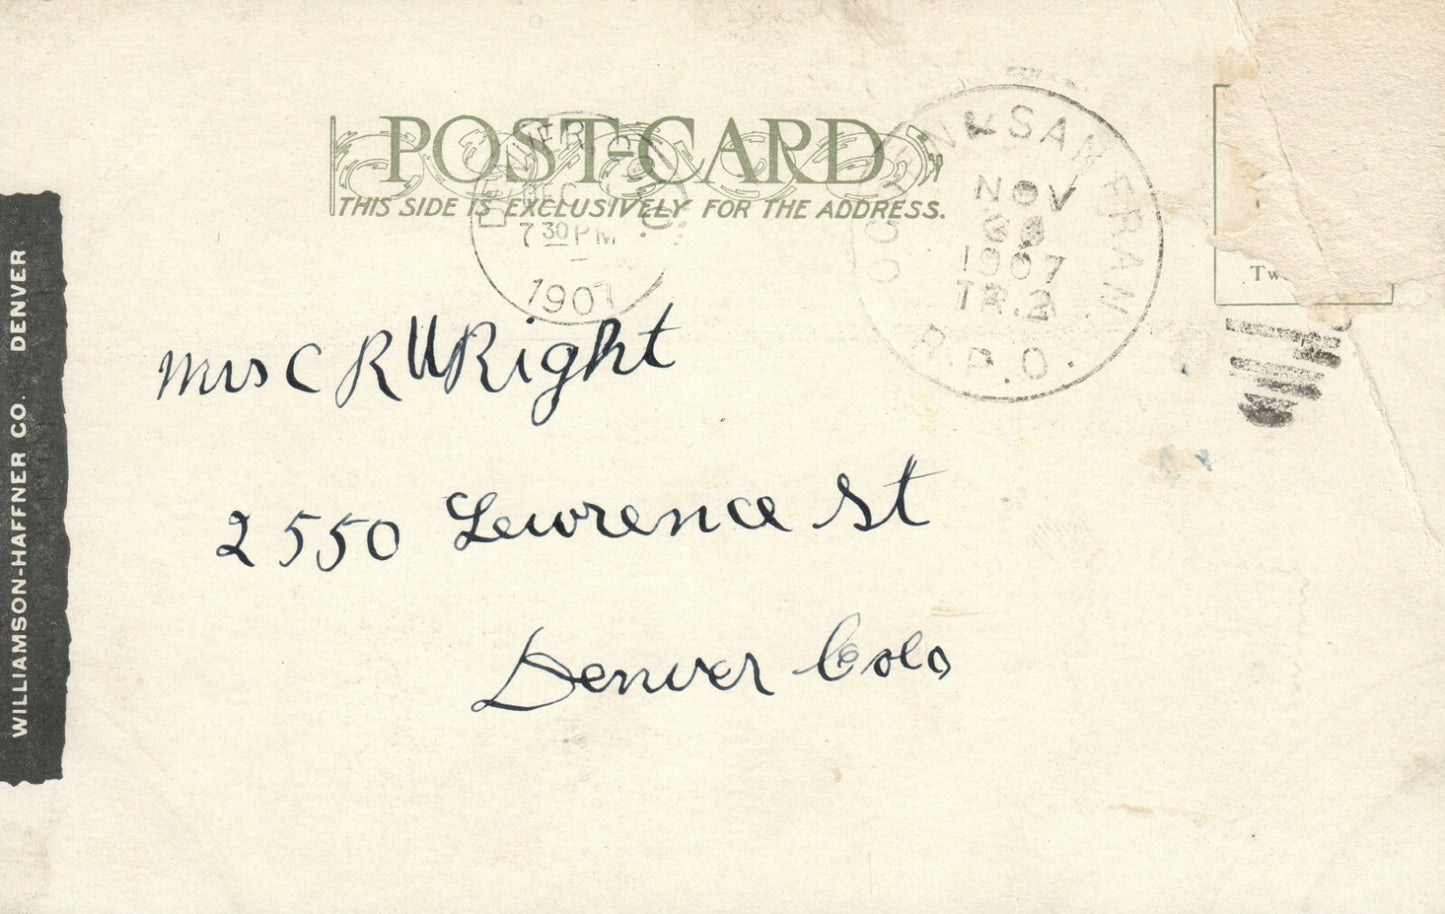 POST-CARD
THIS SIDE IS EXCLUSIVELY FOR THE ADDRESS.
DENVER
DEC
7 30 PM
1907
& SAN FRAN.
NOV
1907
TR. 2
R.P.O.
Tw
Mrs C R WRight
2550 Lewrence St
Denver Colo
WILLIAMSON-HAFFNER CO. DENVER